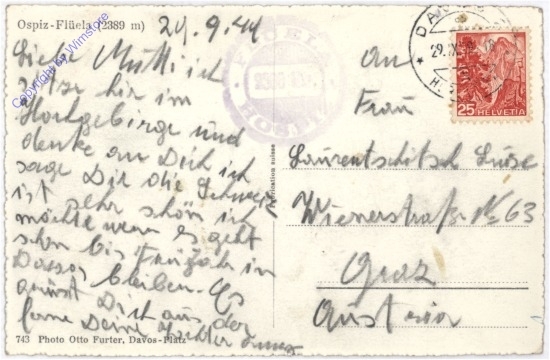 Ospiz-Flüela (2389 m)
29.9.49
Liebe Mutti ich
sitze hir im
Hochgebirge und
denke an Dich ich
sage Dir die Schweiz
ist sehr schön ich
möchte wenn es geht
schon bis Frühjahr in
Davos bleiben. Es
grüsst Dich aus der
ferne Deine Tochter
743 Photo Otto Furter, Davos-Platz
Copyright by Wimstore
HOTEL
An
Frau
Laurentschitsch Luise
Wienerstraße No 63
Graz
Austria
29.IX.
25 HELVETIA